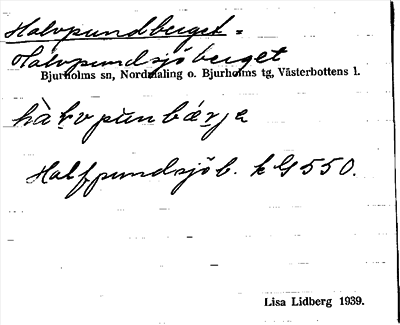 Halvpundberget =
Halvpundsjöberget
Bjurholms sn, Nordmaling o. Bjurholms tg, Västerbottens l.
hàḷvpùnbǽrjɐ
Halfpundsjöb. k G 550.
Lisa Lidberg 1939.